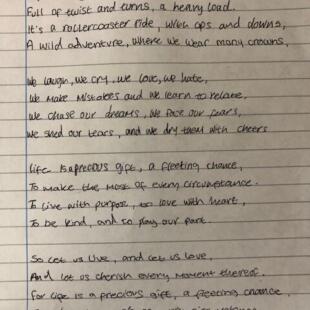 Full of twist and turns, a heavy load.
It's a rollercoaster ride, with ups and downs,
A wild adventure, where we wear many crowns,
We laugh, we cry, we love, we hate,
We make mistakes and we learn to relate,
We chase our dreams, we face our fears,
We shed our tears, and we dry them with cheers
Life is a precious gift, a fleeting chance,
To make the most of every circumstance.
To live with purpose, to love with heart,
To be kind, and to play our part.
So let us live, and let us love,
And let us cherish every moment thereof.
For life is a precious gift, a fleeting chance,